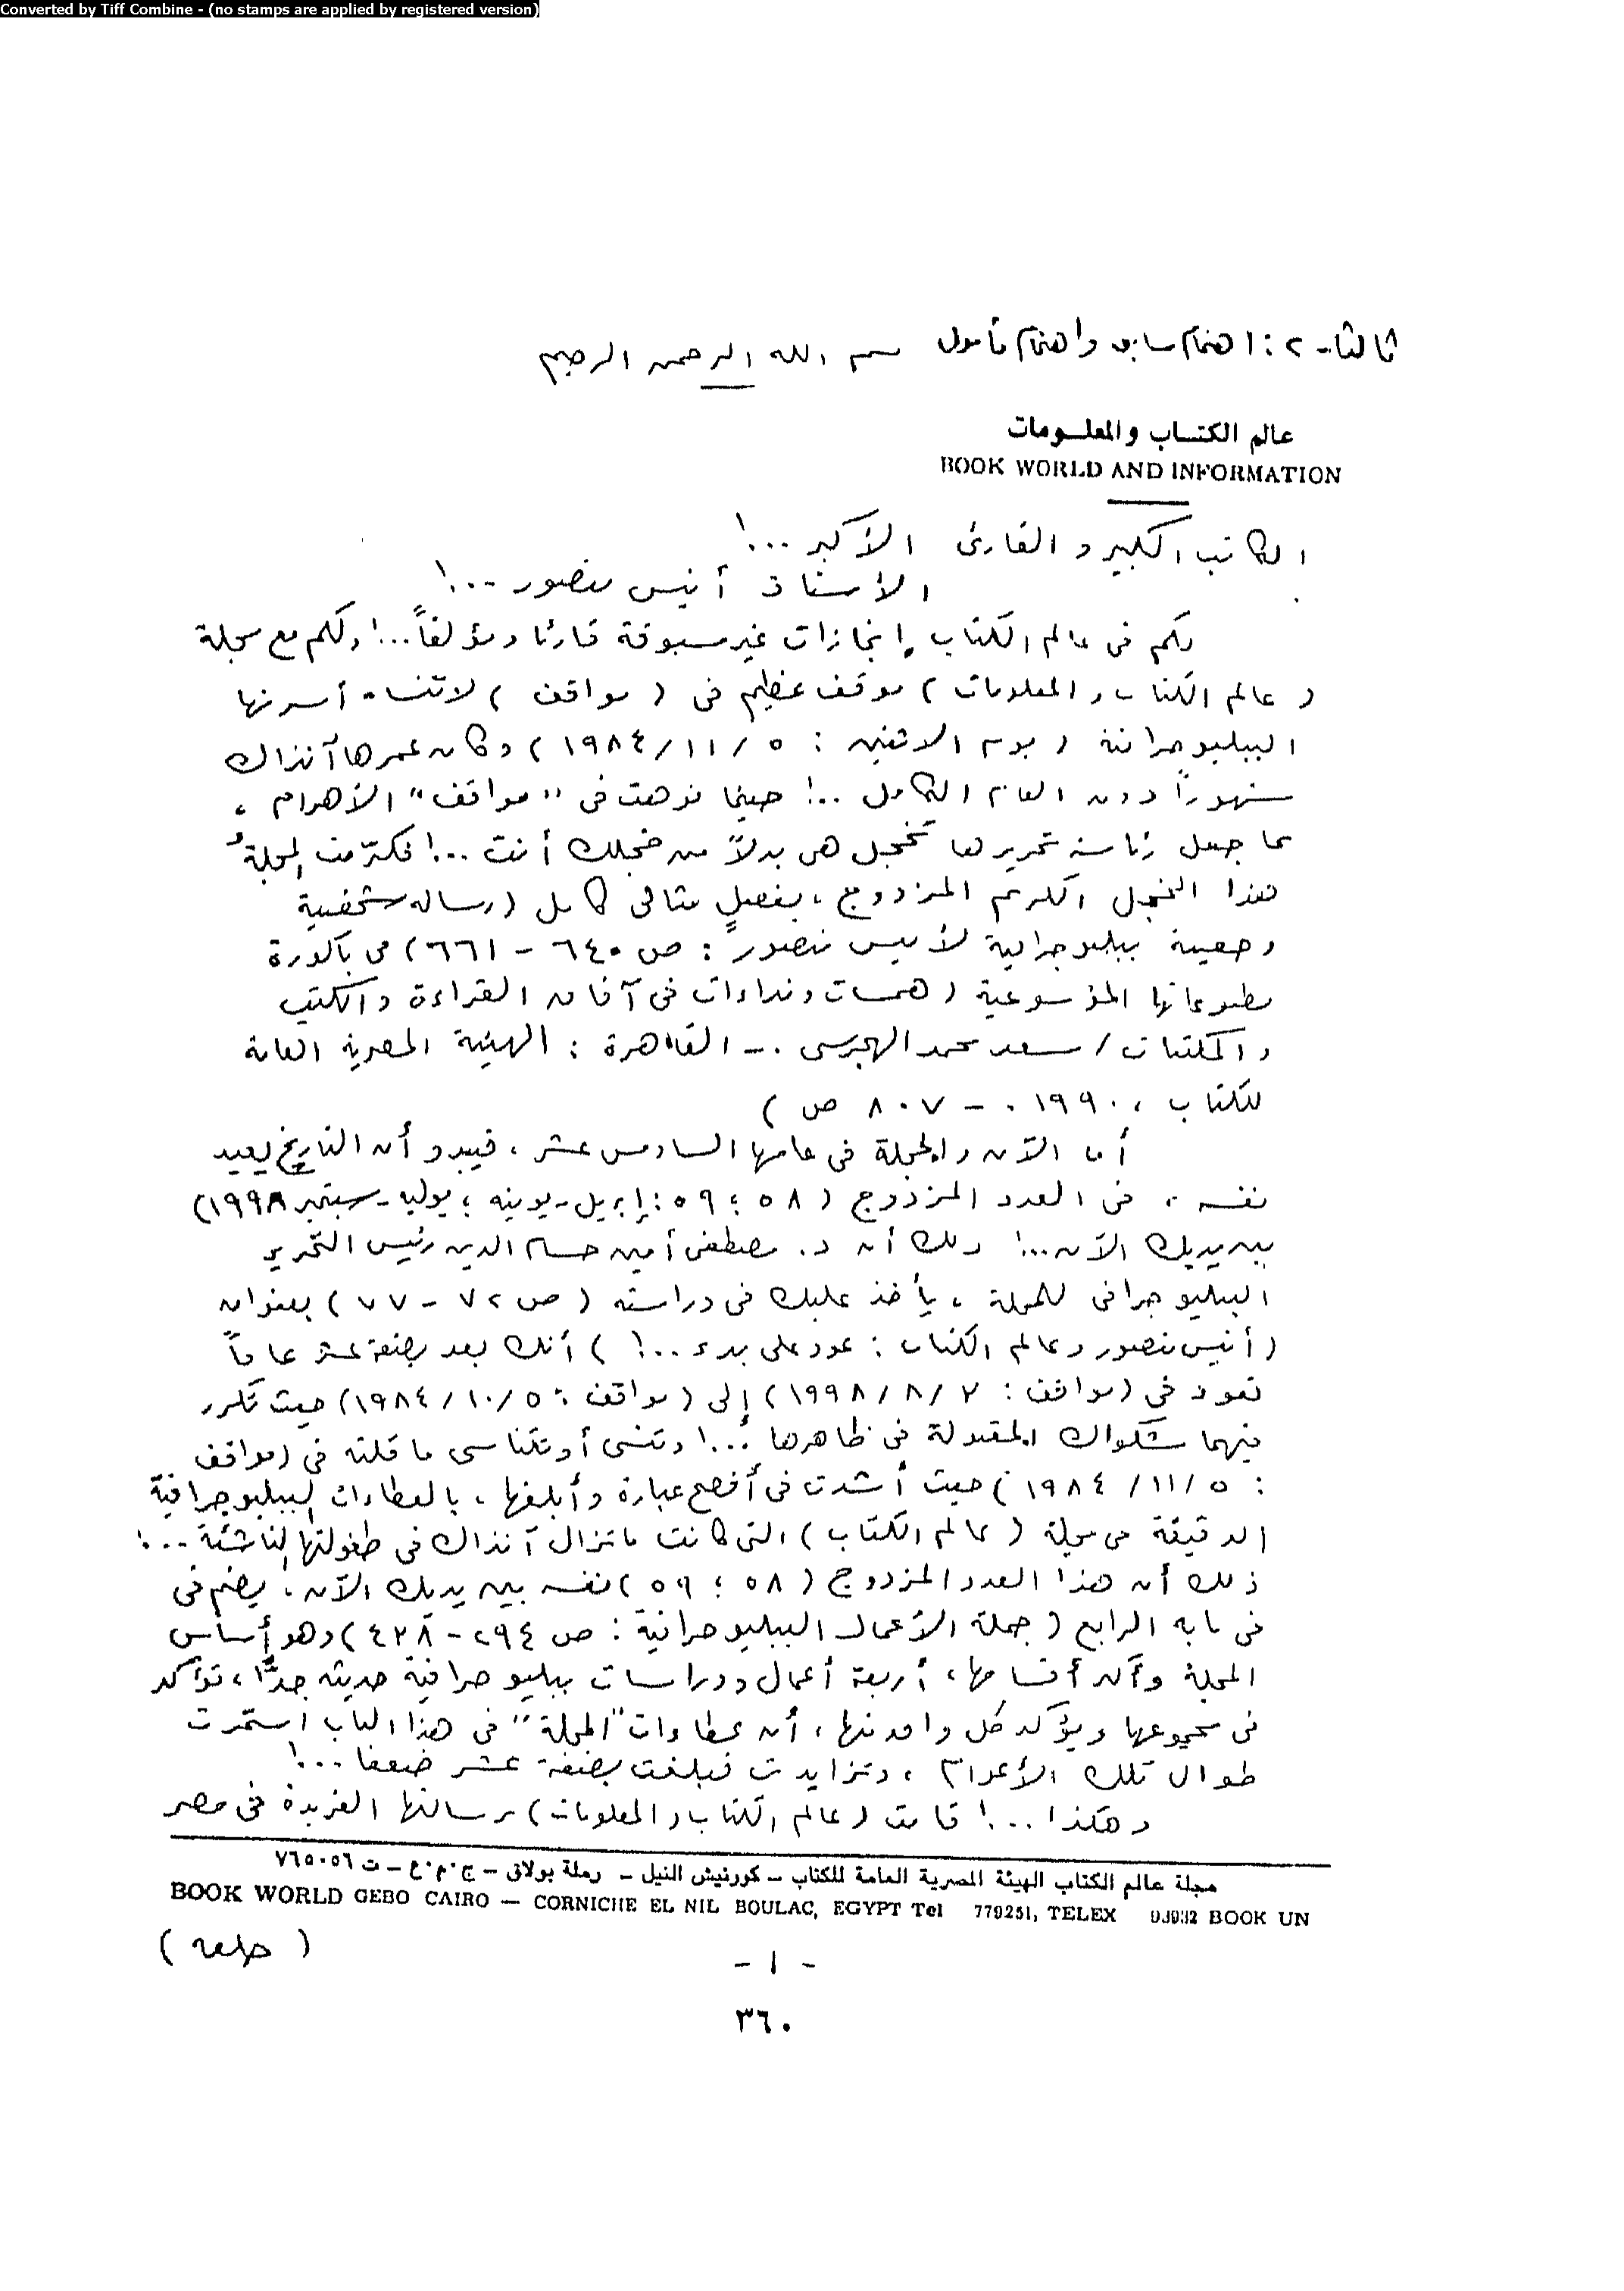 Converted by Tiff Combine - (no stamps are applied by registered version)
ثالثا - ٢ : اهتمام سابق واهتمام مأمول بسم الله الرحمن الرحيم
عالم الكتاب والمعلومات
BOOK WORLD AND INFORMATION
الكاتب الكبير والقارئ الأكبر ...!
الأستاذ أنيس منصور ...!
لكم فى عالم الكتاب إنجازات غير مسبوقة قارئا ومؤلفاً ...! ولكم مع مجلة
( عالم الكتاب والمعلومات ) موقف عظيم فى ( مواقف ) لا تنساه أسرتها
الببليوجرافية ( يوم الاثنين : ٥ / ١١ / ١٩٨٤ ) وكان عمرها آنذاك
شهوراً دون العام الكامل ...! حينما نوهت فى "مواقف" الأهرام ،
مما جعل رئاسة تحريرها تخجل هى بدلاً من خجلك أنت ...! فكرّمت المجلةُ
هذا الخجل الكريم المزدوج ، بفصلٍ مثالى كامل ( رسالة شخصية
وحصيلة ببليوجرافية لأنيس منصور : ص ٦٤٠ - ٦٦١ ) من باكورة
مطبوعاتها الموسوعية ( همسات ونداءات فى آفاق القراءة والكتب
والمكتبات / سعد محمد الهجرسى . - القاهرة : الهيئة المصرية العامة
للكتاب ، ١٩٩٠ . - ٨٠٧ ص )
أما الآن والمجلة فى عامها السادس عشر ، فيبدو أن التاريخ يعيد
نفسه ، فى العدد المزدوج ( ٥٨ ؛ ٥٩ : إبريل - يونيه ؛ يوليه - سبتمبر ١٩٩٨ )
بين يديك الآن ...! ذلك أن د. مصطفى أمين حسام الدين رئيس التحرير
الببليوجرافى للمجلة ، يأخذ عليك فى دراسته ( ص ٧٢ - ٧٧ ) بعنوان
( أنيس منصور وعالم الكتاب : عود على بدء ...! ) أنك بعد بضعة عشر عاماً
تعود فى ( مواقف : ٢ / ٨ / ١٩٩٨ ) إلى ( مواقف : ٥ / ١٠ / ١٩٨٤ ) حيث تكرر
فيهما شكواك المقبولة فى ظاهرها ...! وتنسى أو تتناسى ما قلته فى ( مواقف
: ٥ / ١١ / ١٩٨٤ ) حيث أشدت فى أفصح عبارة وأبلغها ، بالعطاءات الببليوجرافية
الدقيقة من مجلة ( عالم الكتاب ) التى كانت ما تزال آنذاك فى طفولتها الناشئة ...!
ذلك أن هذا العدد المزدوج ( ٥٨ ؛ ٥٩ ) نفسه بين يديك الآن ، يضم فى
فى بابه الرابع ( جملة الأعمال الببليوجرافية : ص ٢٩٤ - ٤٢٨ ) وهو أساس
المجلة وآكد أقسامها ، أربعة أعمال ودراسات ببليوجرافية حديثه جدًّا ، تؤكد
فى مجموعها ويؤكد كل واحد منها ، أن عطاءات "المجلة" فى هذا الباب استمرت
طوال تلك الأعوام ، وتزايدت فبلغت بضعة عشر ضعفا ...!
وهكذا ...! قامت ( عالم الكتاب والمعلومات ) برسالتها الفريدة فى مصر
مجلة عالم الكتاب الهيئة المصرية العامة للكتاب - كورنيش النيل - رملة بولاق - ج.م.ع - ت ٧٦٥٠٥٦
BOOK WORLD GEBO CAIRO — CORNICHE EL NIL BOULAC, EGYPT Tel 779251, TELEX 93932 BOOK UN
- ١ -
٣٦٠